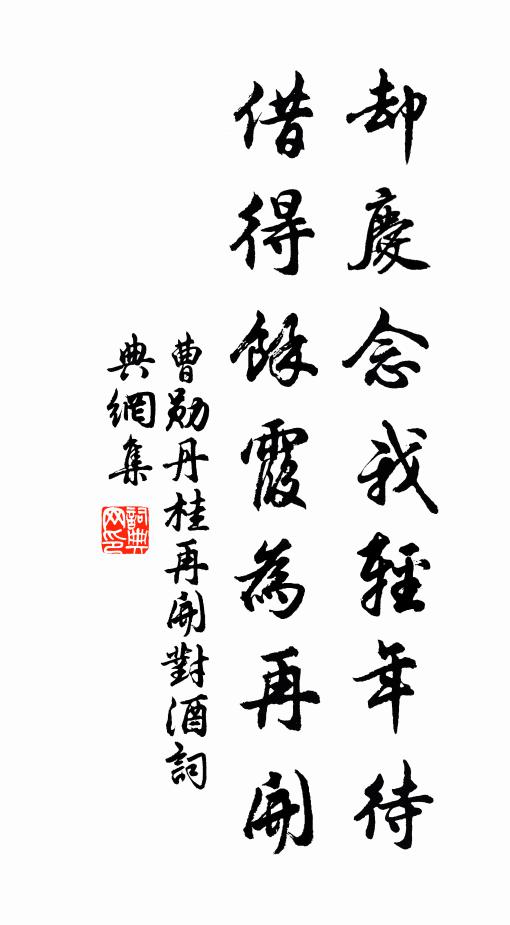 却慶念我輕年待
借得餘霞為再開
曹勛丹桂再開對酒詞
典網集
詞典網印